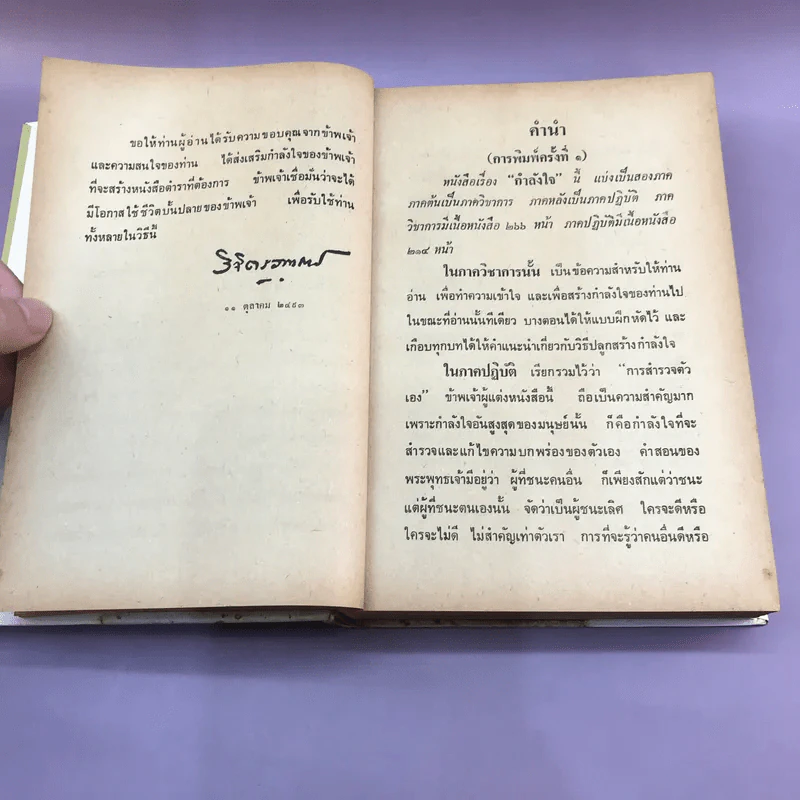 ขอให้ท่านผู้อ่านได้รับความขอบคุณจากข้าพเจ้า
และความสนใจของท่าน ได้ส่งเสริมกำลังใจของข้าพเจ้า
ที่จะสร้างหนังสือตำราที่ต้องการ ข้าพเจ้าเชื่อมั่นว่าจะได้
มีโอกาสใช้ชีวิตบั้นปลายของข้าพเจ้า เพื่อรับใช้ท่าน
ทั้งหลายในวิธีนี้
วิจิตรวาทการ
๑๑ ตุลาคม ๒๔๙๓
คำนำ
(การพิมพ์ครั้งที่ ๑)
หนังสือเรื่อง "กำลังใจ" นี้ แบ่งเป็นสองภาค
ภาคต้นเป็นภาควิชาการ ภาคหลังเป็นภาคปฏิบัติ ภาค
วิชาการมีเนื้อหนังสือ ๒๖๖ หน้า ภาคปฏิบัติมีเนื้อหนังสือ
๒๑๔ หน้า
ในภาควิชาการนั้น เป็นข้อความสำหรับให้ท่าน
อ่าน เพื่อทำความเข้าใจ และเพื่อสร้างกำลังใจของท่านไป
ในขณะที่อ่านนั้นทีเดียว บางตอนได้ให้แบบฝึกหัดไว้ และ
เกือบทุกบทได้ให้คำแนะนำเกี่ยวกับวิธีปลูกสร้างกำลังใจ
ในภาคปฏิบัติ เรียกรวมไว้ว่า "การสำรวจตัว
เอง" ข้าพเจ้าผู้แต่งหนังสือนี้ ถือเป็นความสำคัญมาก
เพราะกำลังใจอันสูงสุดของมนุษย์นั้น ก็คือกำลังใจที่จะ
สำรวจและแก้ไขความบกพร่องของตัวเอง คำสอนของ
พระพุทธเจ้ามีอยู่ว่า ผู้ที่ชนะคนอื่น ก็เพียงสักแต่ว่าชนะ
แต่ผู้ที่ชนะตนเองนั้น จัดว่าเป็นผู้ชนะเลิศ ใครจะดีหรือ
ใครจะไม่ดี ไม่สำคัญเท่าตัวเรา การที่จะรู้ว่าคนอื่นดีหรือ